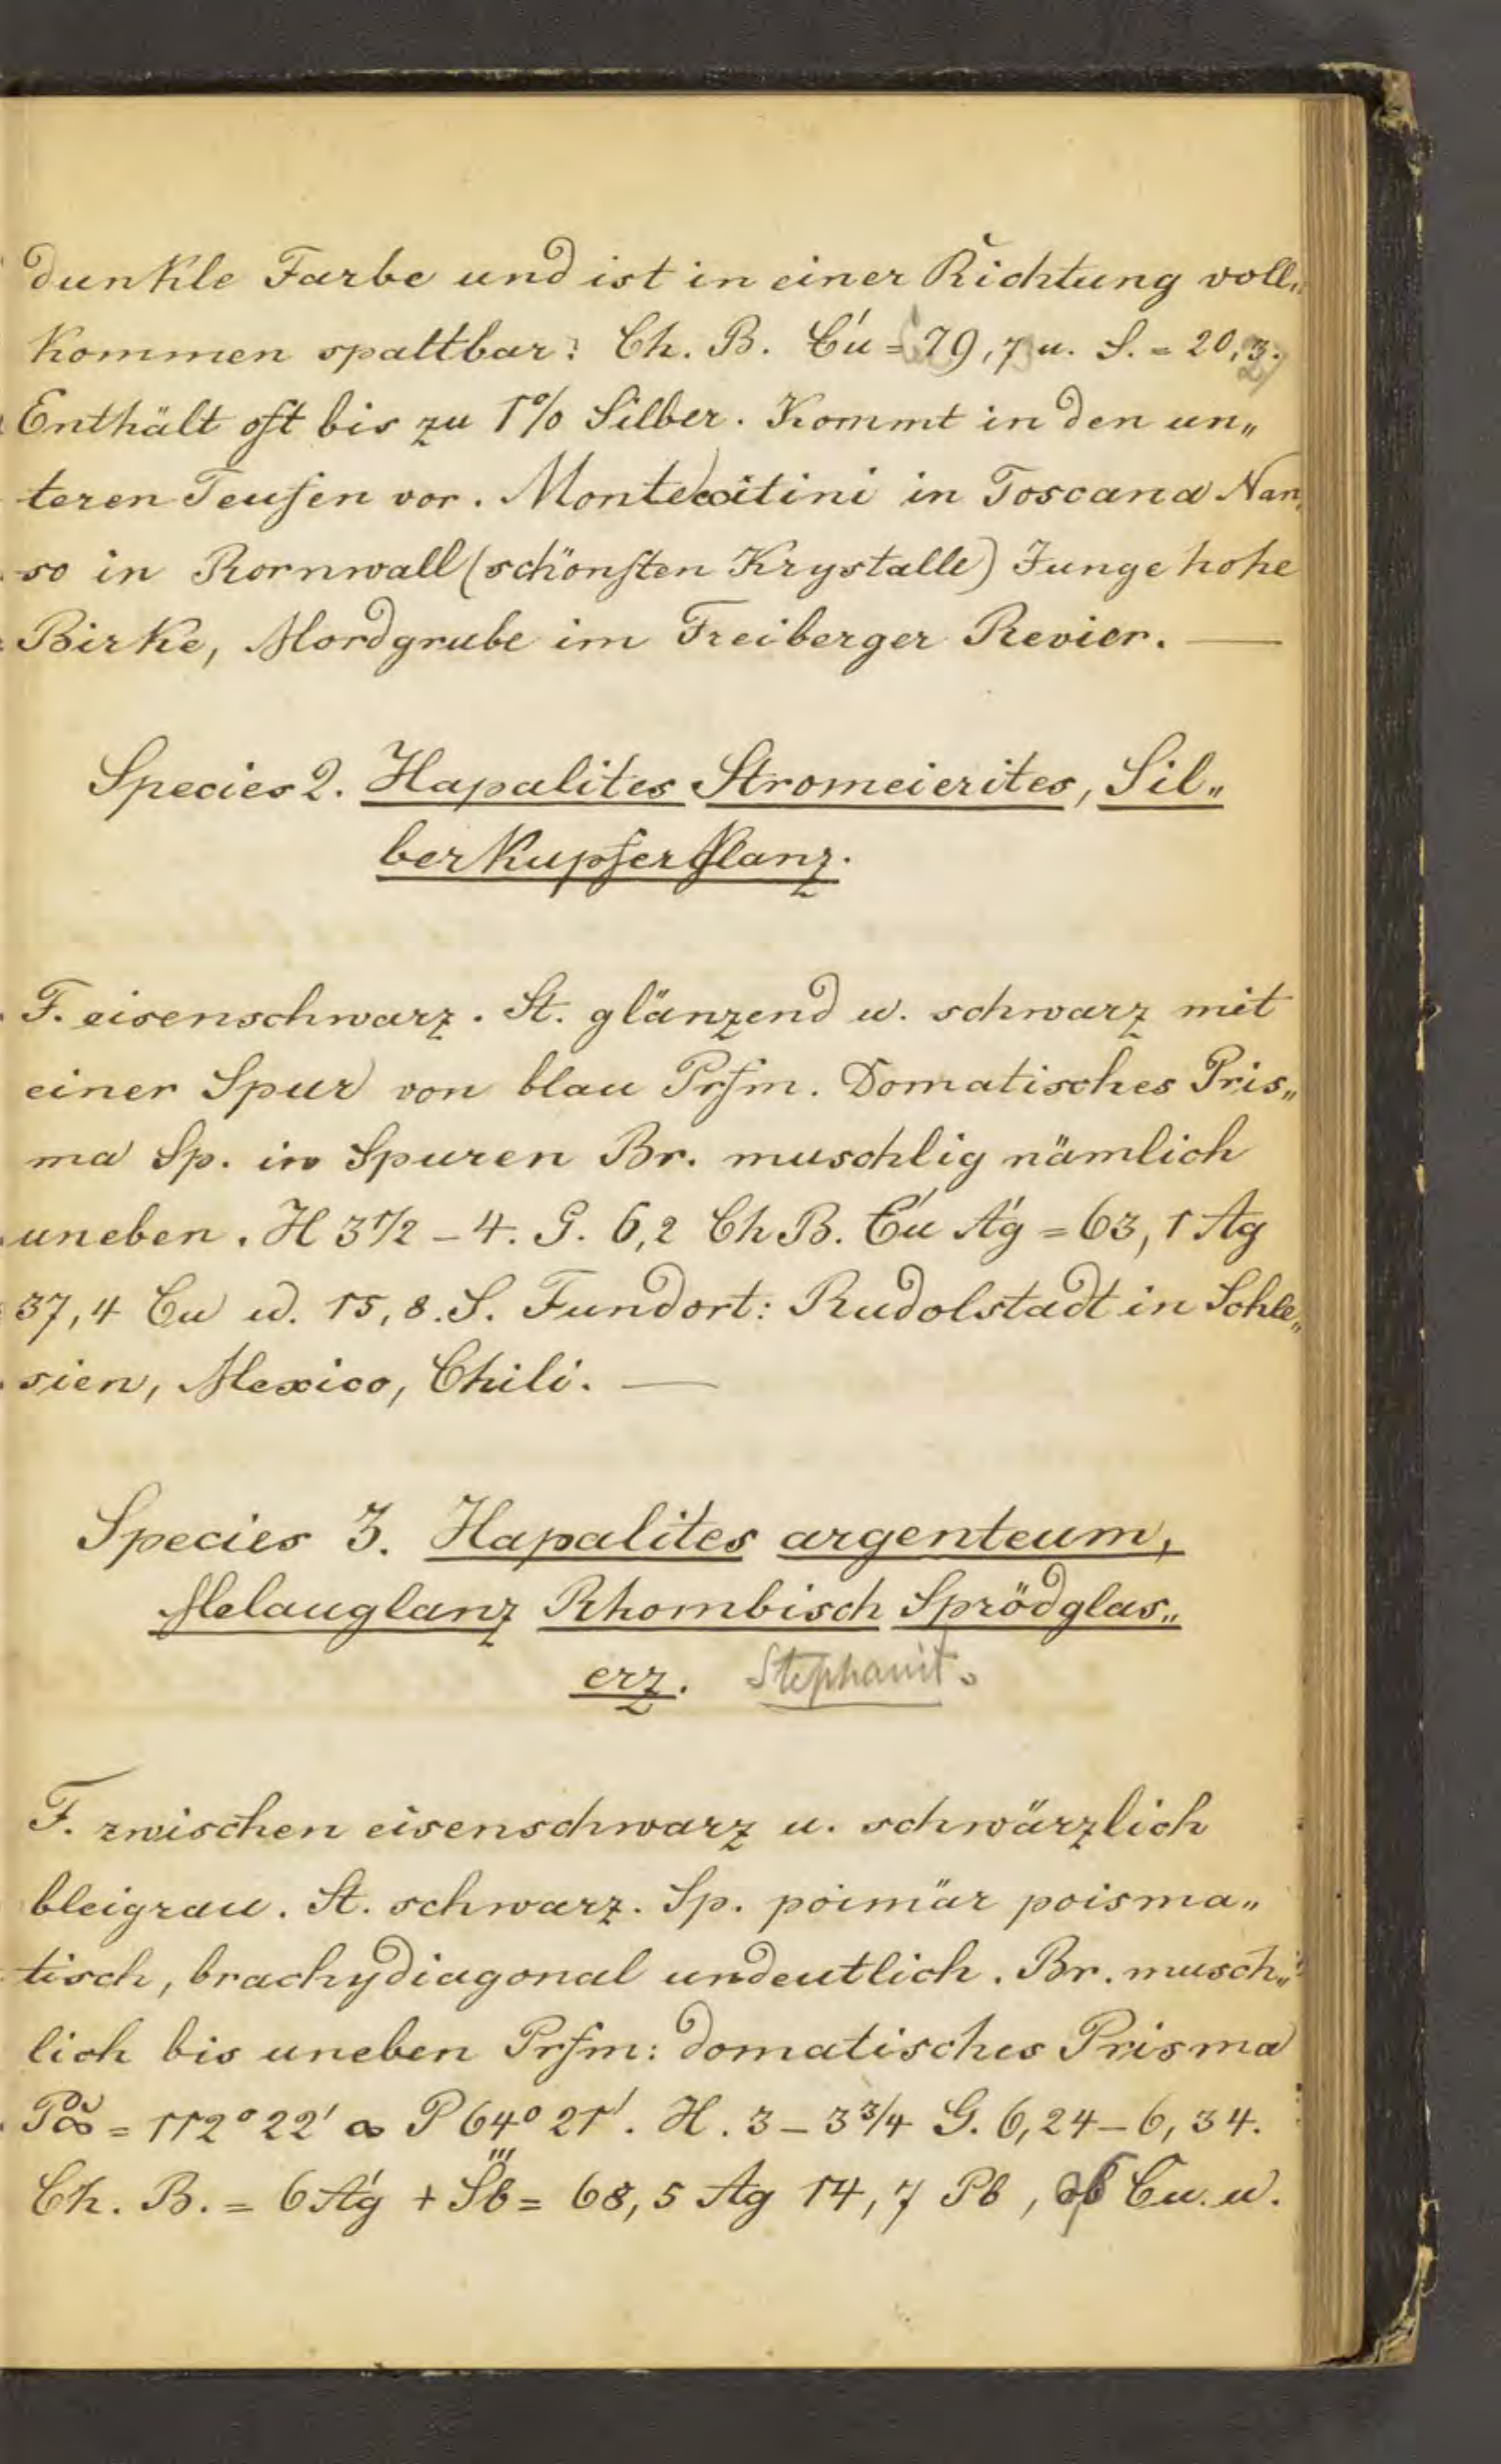 dunkle Farbe und ist in einer Richtung voll„
kommen spaltbar: Ch. B. Ću = 79,7 u. S. = 20,3.
Enthält oft bis zu 1% Silber. Kommt in den un„
teren Teufen vor. Montecatini in Toscana Nan„
so in Kornwall (schönsten Krystalle) Junge hohe
Birke, Mordgrube im Freiberger Revier. —
Species 2. Hapalites Stromeierites, Sil„
berkupferglanz.
F. eisenschwarz. St. glänzend u. schwarz mit
einer Spur von blau Prfm. Domatisches Pris„
ma Sp. in Spuren Br. muschlig nämlich
uneben. H 3 1/2 – 4. G. 6,2 Ch B. Ću Ág = 63,1 Ag
37,4 Cu u. 15,8. S. Fundort: Rudolstadt in Schle„
sien, Mexico, Chili. —
Species 3. Hapalites argenteum,
Melauglanz Rhombisch Sprödglas„
erz. Stephanit.
F. zwischen eisenschwarz u. schwärzlich
bleigrau. St. schwarz. Sp. poimär poisma„
tisch, brachydiagonal undeutlich. Br. musch„
lich bis uneben Prfm: domatisches Prisma
P̆∞ = 112° 22' ∞ P 64° 21'. H. 3 – 3 3/4 G. 6,24 – 6,34.
Ch. B. = 6 Ág + S̋b = 68,5 Ag 14,7 Pb, Cu. u.